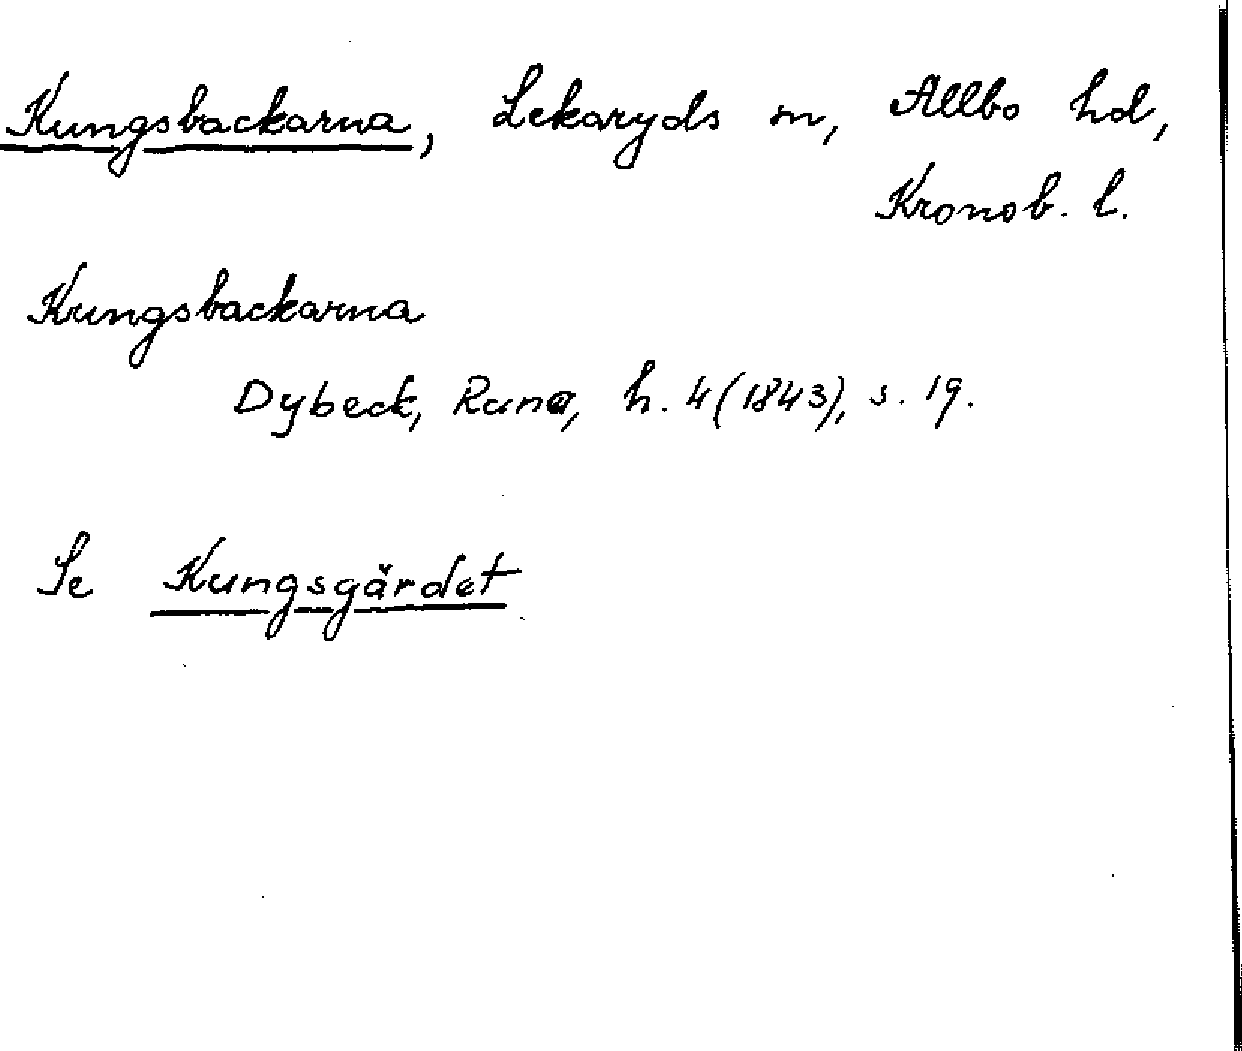 Kungsbackarna, Lekaryds sn, Allbo hd,
Kronob. l.
Kungsbackarna
Dybeck, Runa, h. 4 (1843), s. 19.
Se Kungsgärdet